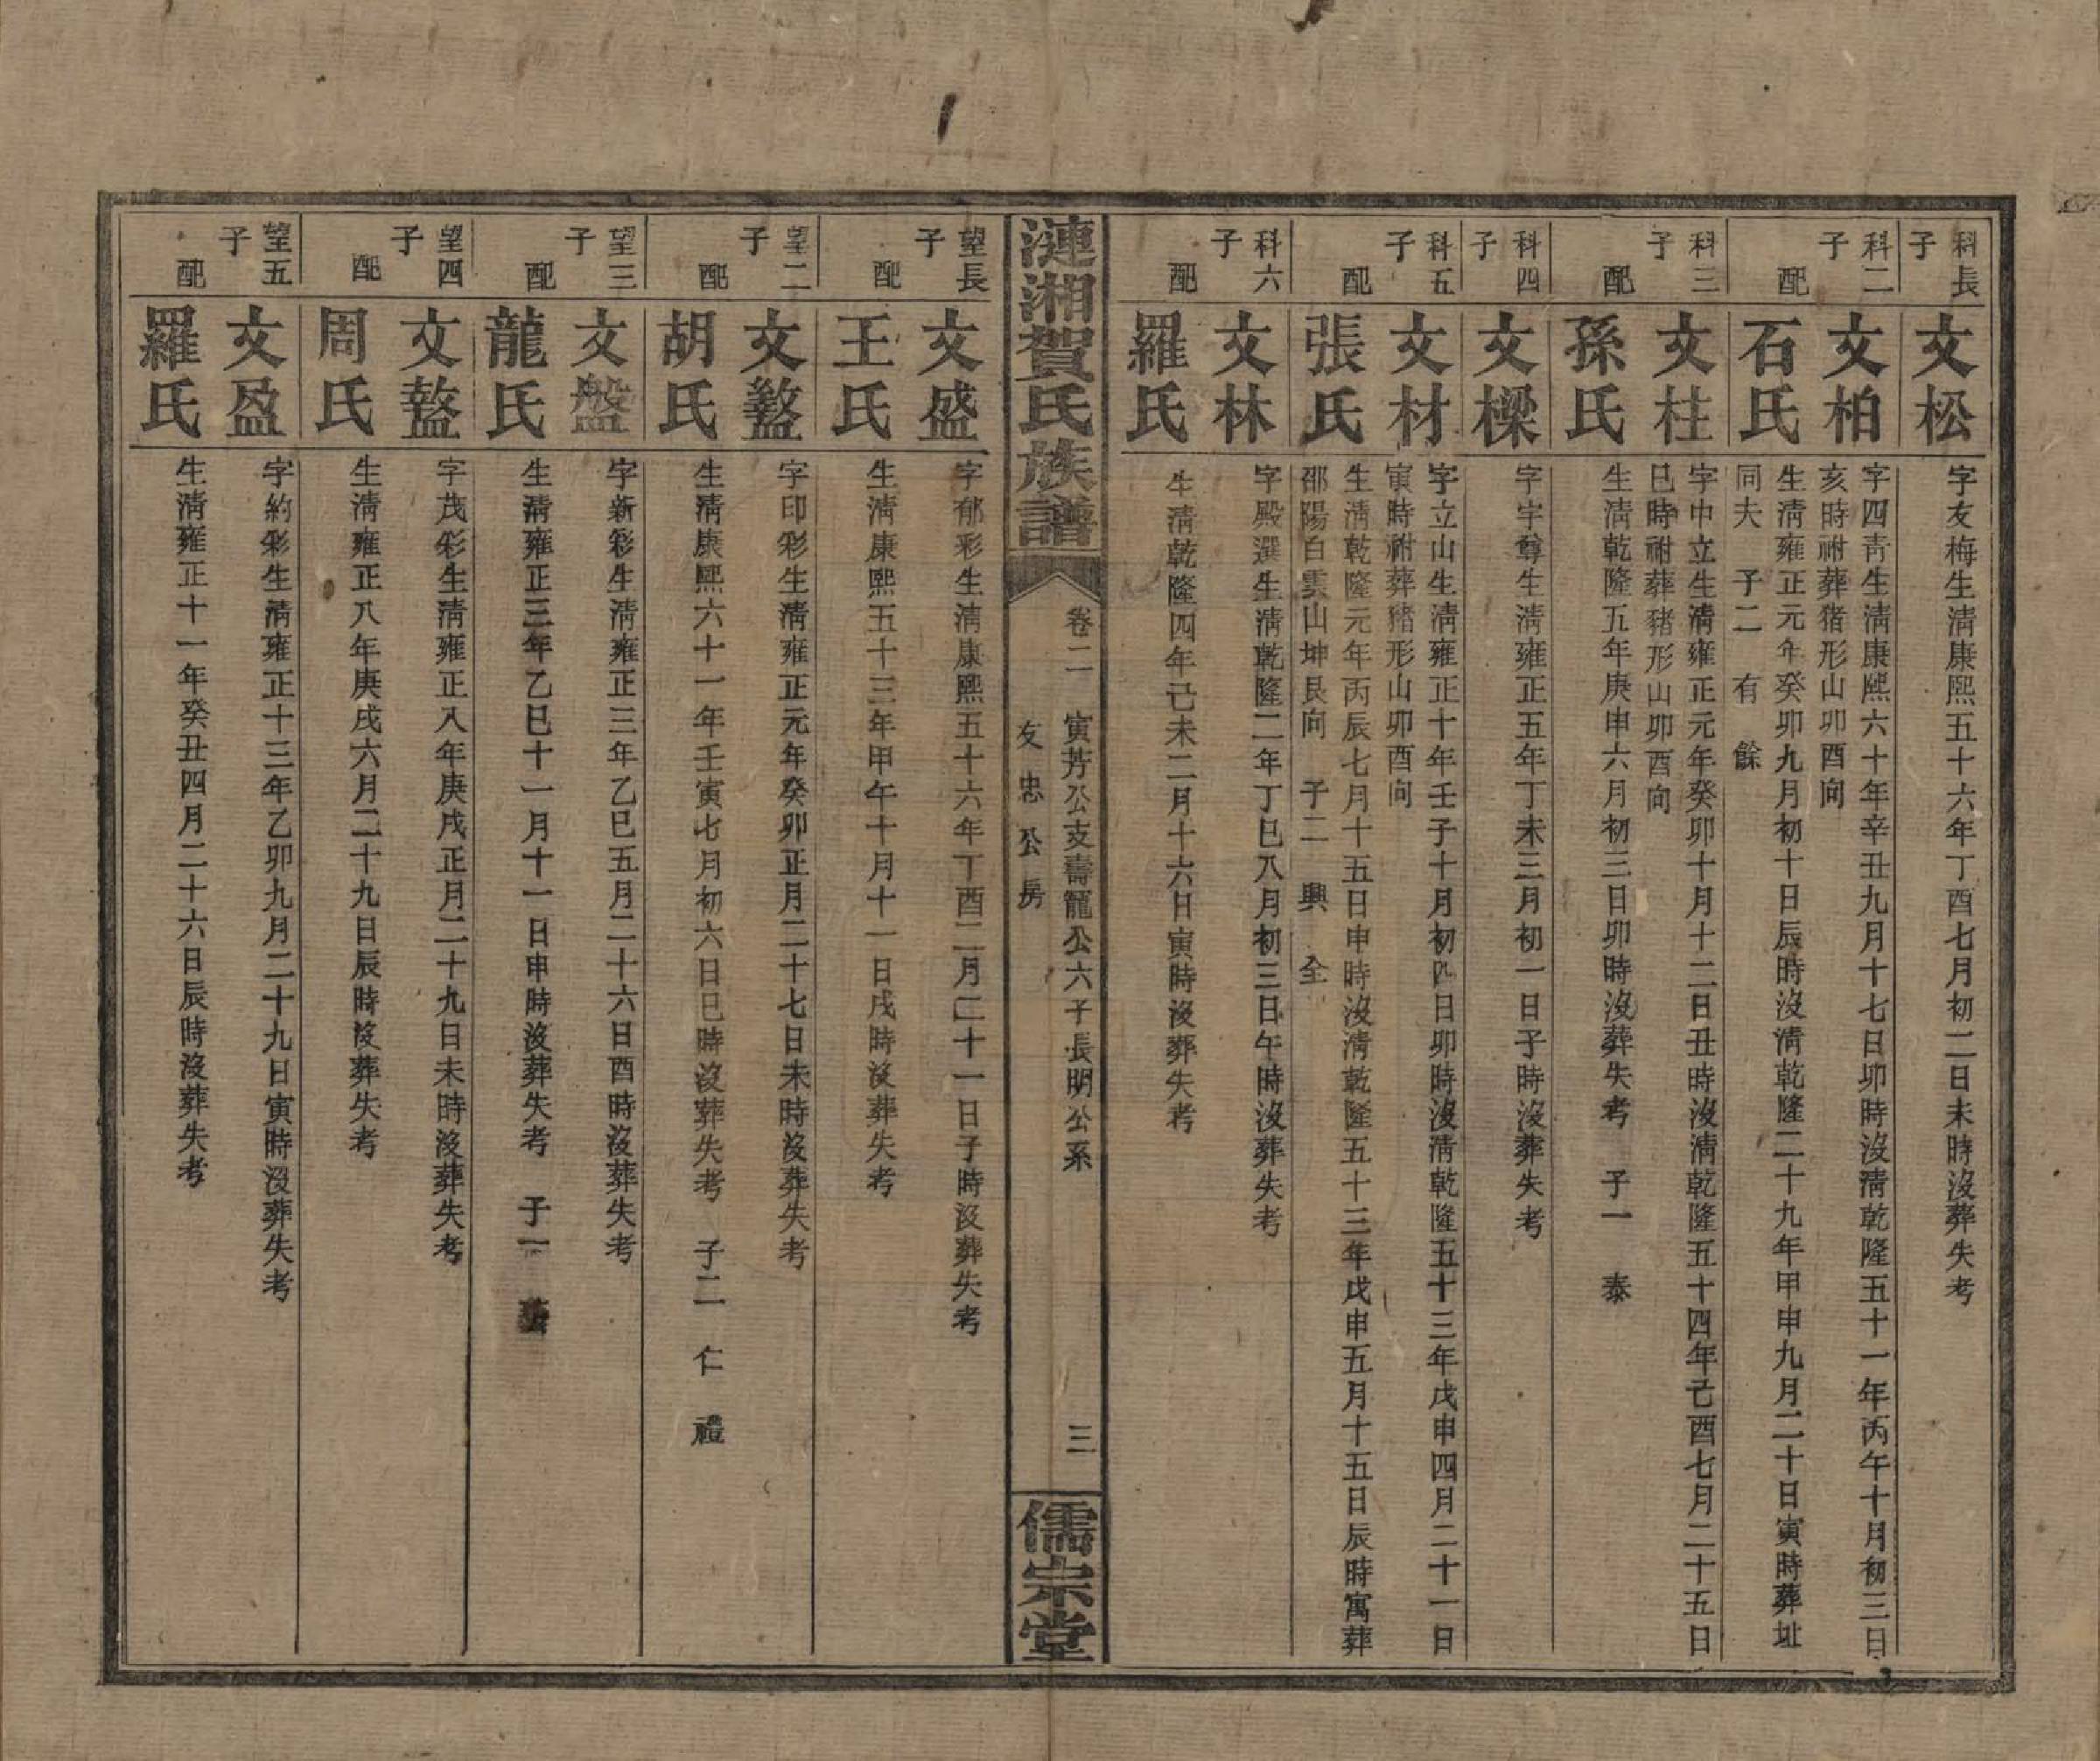 科長子
文松
字友梅生淸康熙五十六年丁酉七月初二日未時沒葬失考
科二子
文柏
字四靑生淸康熙六十年辛丑九月十七日卯時沒淸乾隆五十一年丙午十月初三日
亥時祔葬猪形山卯酉向
配
石氏
生淸雍正元年癸卯九月初十日辰時沒淸乾隆二十九年甲申九月二十日寅時葬址
同夫 子二 有 餘
科三子
文柱
字中立生淸雍正元年癸卯十月十二日丑時沒淸乾隆五十四年己酉七月二十五日
巳時祔葬猪形山卯酉向
配
孫氏
生淸乾隆五年庚申六月初三日卯時沒葬失考 子一 泰
科四子
文樑
字宇尊生淸雍正五年丁未三月初一日子時沒葬失考
科五子
文材
字立山生淸雍正十年壬子十月初四日卯時沒淸乾隆五十三年戊申四月二十一日
寅時祔葬猪形山卯酉向
配
張氏
生淸乾隆元年丙辰七月十五日申時沒淸乾隆五十三年戊申五月十五日辰時寓葬
邵陽白雲山坤艮向 子二 興 全
科六子
文林
字殿選生淸乾隆二年丁巳八月初三日午時沒葬失考
配
羅氏
生淸乾隆四年己未二月十六日寅時沒葬失考
漣湘賀氏族譜
卷二 寅芳公支壽寵公六子長明公系 三
友忠公房
儒宗堂
望長子
文盛
字郁彩生淸康熙五十六年丁酉二月二十一日子時沒葬失考
配
王氏
生淸康熙五十三年甲午十月十一日戌時沒葬失考
望二子
文
字印彩生淸雍正元年癸卯正月二十七日未時沒葬失考
配
胡氏
生淸康熙六十一年壬寅七月初六日巳時沒葬失考 子二 仁 禮
望三子
文盤
字新彩生淸雍正三年乙巳五月二十六日酉時沒葬失考
配
龍氏
生淸雍正三年乙巳十一月十一日申時沒葬失考 子一
望四子
文
字茂彩生淸雍正八年庚戌正月二十九日未時沒葬失考
配
周氏
生淸雍正八年庚戌六月二十九日辰時沒葬失考
望五子
文盈
字約彩生淸雍正十三年乙卯九月二十九日寅時沒葬失考
配
羅氏
生淸雍正十一年癸丑四月二十六日辰時沒葬失考